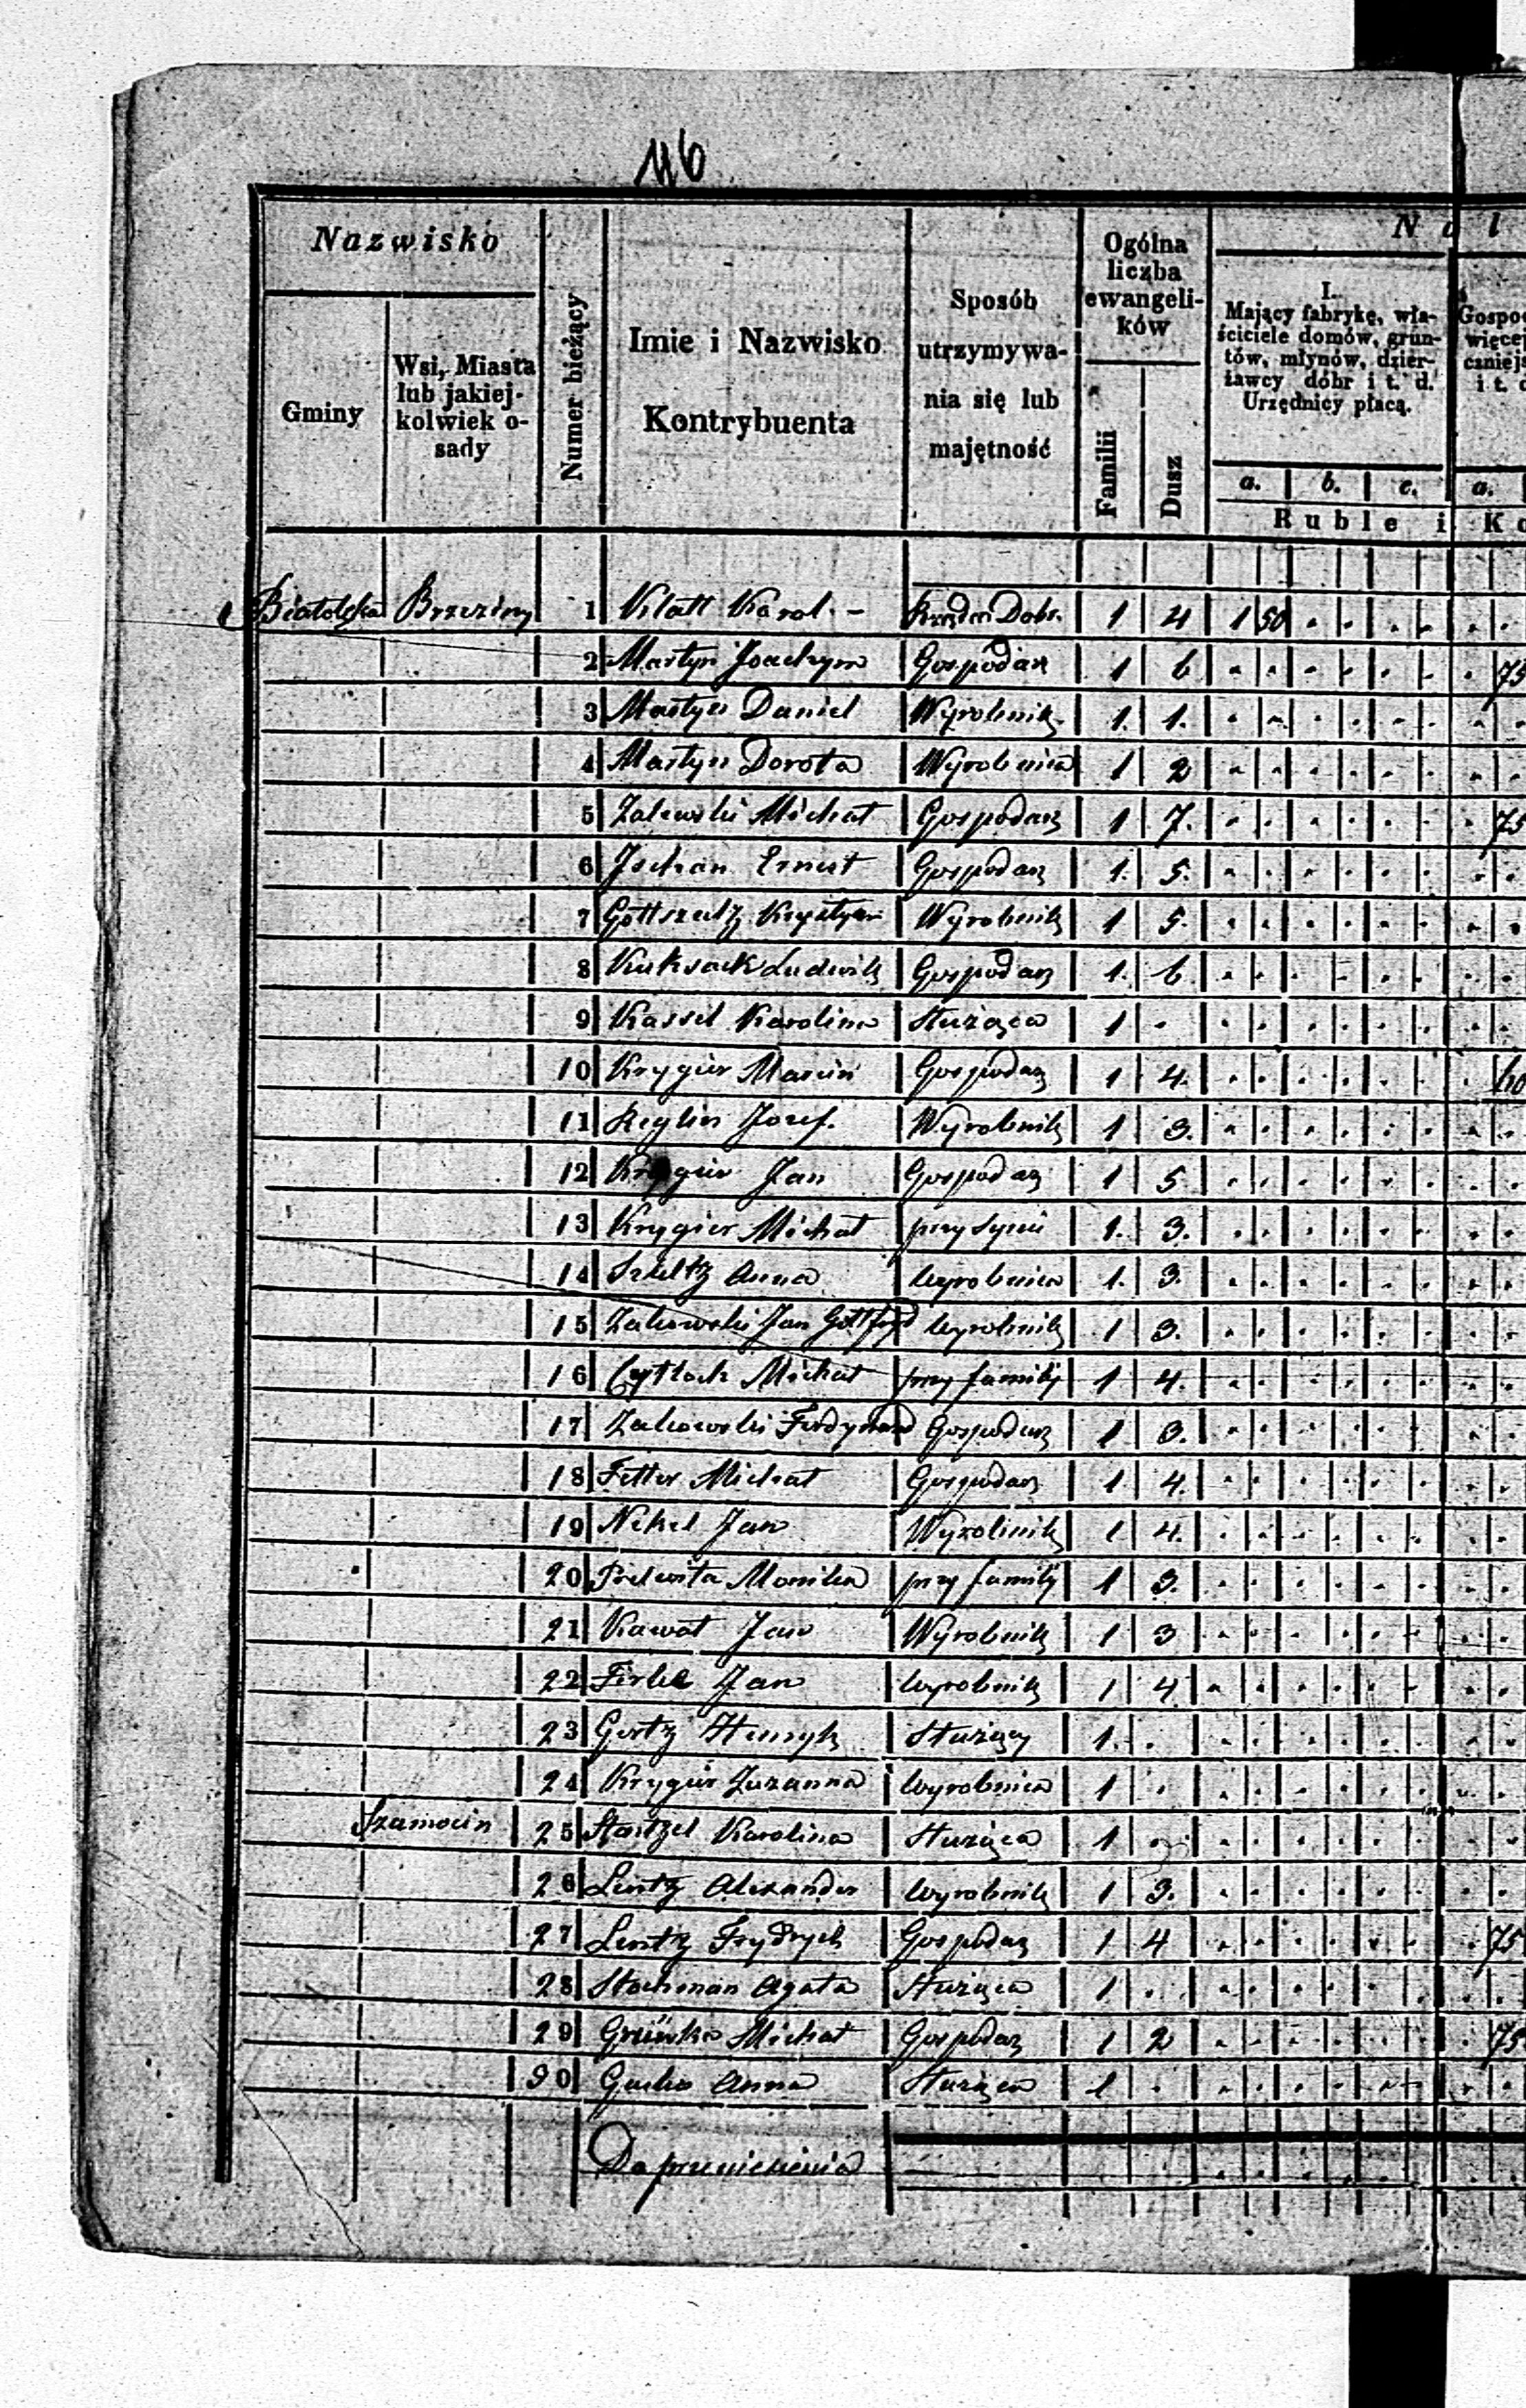 46
Nazwisko
Gminy
Wsi, Miasta lub jakiej-kolwiek o-sady
Numer bieżący
Imie i Nazwisko Kontrybuenta
Sposób utrzymywa-nia się lub majętność
Ogólna liczba ewangeli-ków
Familii
Dusz
I. Mający fabrykę, wła-ściciele domów, grun-tów, młynów, dzier-żawcy dóbr i t. d. Urzędnicy płacą.
a. b. c. a.
Ruble i
Białołęka Brzeziny 1 Klatt Karol - Rządca Dobr. 1 4 1 50
2 Martyn Joachym Gospodarz 1 6 75
3 Martyn Daniel Wyrobnik 1. 1.
4 Martyn Dorota Wyrobnica 1 2
5 Zalewski Michał Gospodarz 1 7. 75
6 Jschan Ernest Gospodarz 1. 5.
7 Gottszaltz Krystyan Wyrobnik 1 5.
8 Kuksack Ludwik Gospodarz 1. 6.
9 Kassel Karolina Służąca 1
10 Krygier Marcin Gospodarz 1 4. 60
11 Reglin Jozef. Wyrobnik 1 3.
12 Krygier Jan Gospodarz 1 5
13 Krygier Michał przy synu 1. 3.
14 Szultz Anna Wyrobnica 1. 3.
15 Jan Gottfryd Wyrobnik 1 3.
16 Michał przy familij 1 4.
17 Ferdynand Gospodarz 1 3.
18 Fetter Michał Gospodarz 1 4.
19 Nikel Jan Wyrobnik 1 4.
20 Monika przy familij 1 3.
21 Kawał Jan Wyrobnik 1 3
22 Jan Wyrobnik 1 4
23 Gertz Henryk Służący 1.
24 Krygier Zuzanna Wyrobnica 1
Szamocin 25 Karolina Służąca 1
26 Lentz Alexander Wyrobnik 1 3.
27 Lentz Frydrych Gospodarz 1 4 75
28 Stochman Agata Służąca 1
29 Grünke Michał Gospodarz 1 2 75
30 Anna Służąca 1
Do przeniesienia